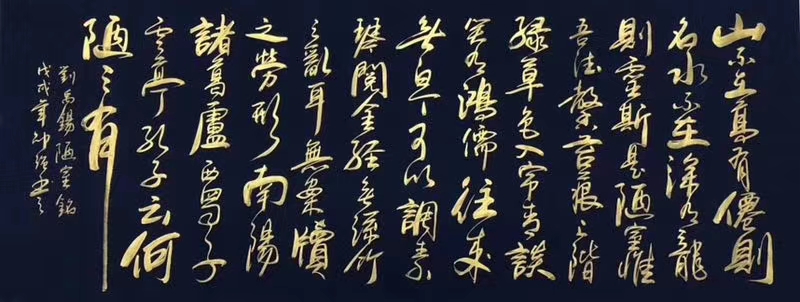 山不在高有僊則
名水不在深有龍
則靈斯是陋室惟
吾德馨苔痕上階
綠草色入帘青談
笑有鴻儒往來
無白丁可以調素
琴閱金經無絲竹
之亂耳無案牘
之勞形南陽
諸葛廬西蜀子
雲亭孔子云何
陋之有
劉禹錫陋室銘
戊戌年